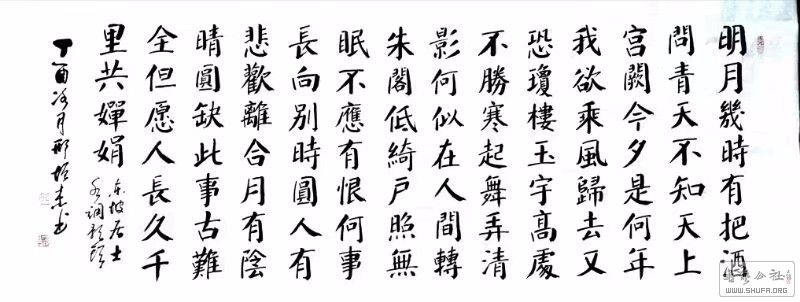 明月幾時有把酒
問青天不知天上
宮闕今夕是何年
我欲乘風歸去又
恐瓊樓玉宇高處
不勝寒起舞弄清
影何似在人間轉
朱閣低綺戶照無
眠不應有恨何事
長向別時圓人有
悲歡離合月有陰
晴圓缺此事古難
全但愿人長久千
里共嬋娟
东坡居士
水调歌頭
丁酉
月邢培
书
公社
WWW.SHUFA.ORG